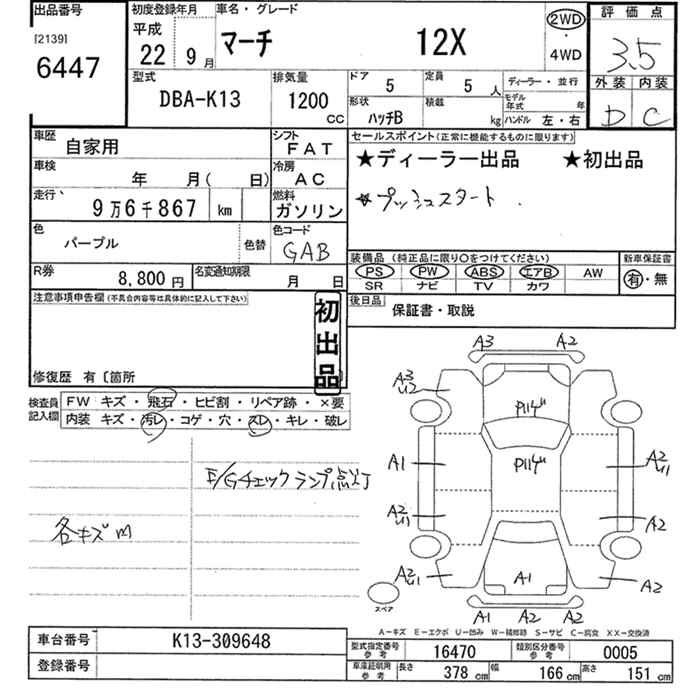 出品番号
[2139]
6447
初度登録年月
平成
22 9月
車名・グレード
マーチ 12X
2WD
・
4WD
評価点
3.5
外装 内装
D C
型式
DBA-K13
排気量
1200 cc
ドア 5
定員 5 人
形状 ハッチB
積載 kg
ディーラー・並行
モデル年式 年
ハンドル 左・右
車歴 自家用
シフト FAT
車検 年 月( 日)
冷房 AC
走行 9万6千867 km
燃料 ガソリン
色 パープル 色替
色コード GAB
R券 8,800円
名変通知期限 月 日
セールスポイント(正常に機能するものに限ります)
★ディーラー出品 ★初出品
★プッシュスタート.
装備品(純正品に限り〇をつけてください)
PS PW ABS エアB AW
SR ナビ TV カワ
新車保証書
有・無
後日品 保証書・取説
注意事項申告欄(不具合内容等は具体的に記入して下さい)
初出品
修復歴 有〔箇所
検査員記入欄
FW キズ・飛石・ヒビ割・リペア跡・×要
内装 キズ・汚レ・コゲ・穴・スレ・キレ・破レ
E/Gチェックランプ点灯
各キズm
A3 A2
A3
U2
P114μ
A1
P114μ
A2
U1
A2
U1
A2
A2
U1
A1
A2
スペア
A1 A2 A2
A-キズ E-エクボ U-凹み W-補修跡 S-サビ C-腐食 XX-交換済
車台番号 K13-309648
登録番号
型式指定番号参考 16470
類別区分番号参考 0005
車庫証明用参考 長さ 378 cm 幅 166 cm 高さ 151 cm